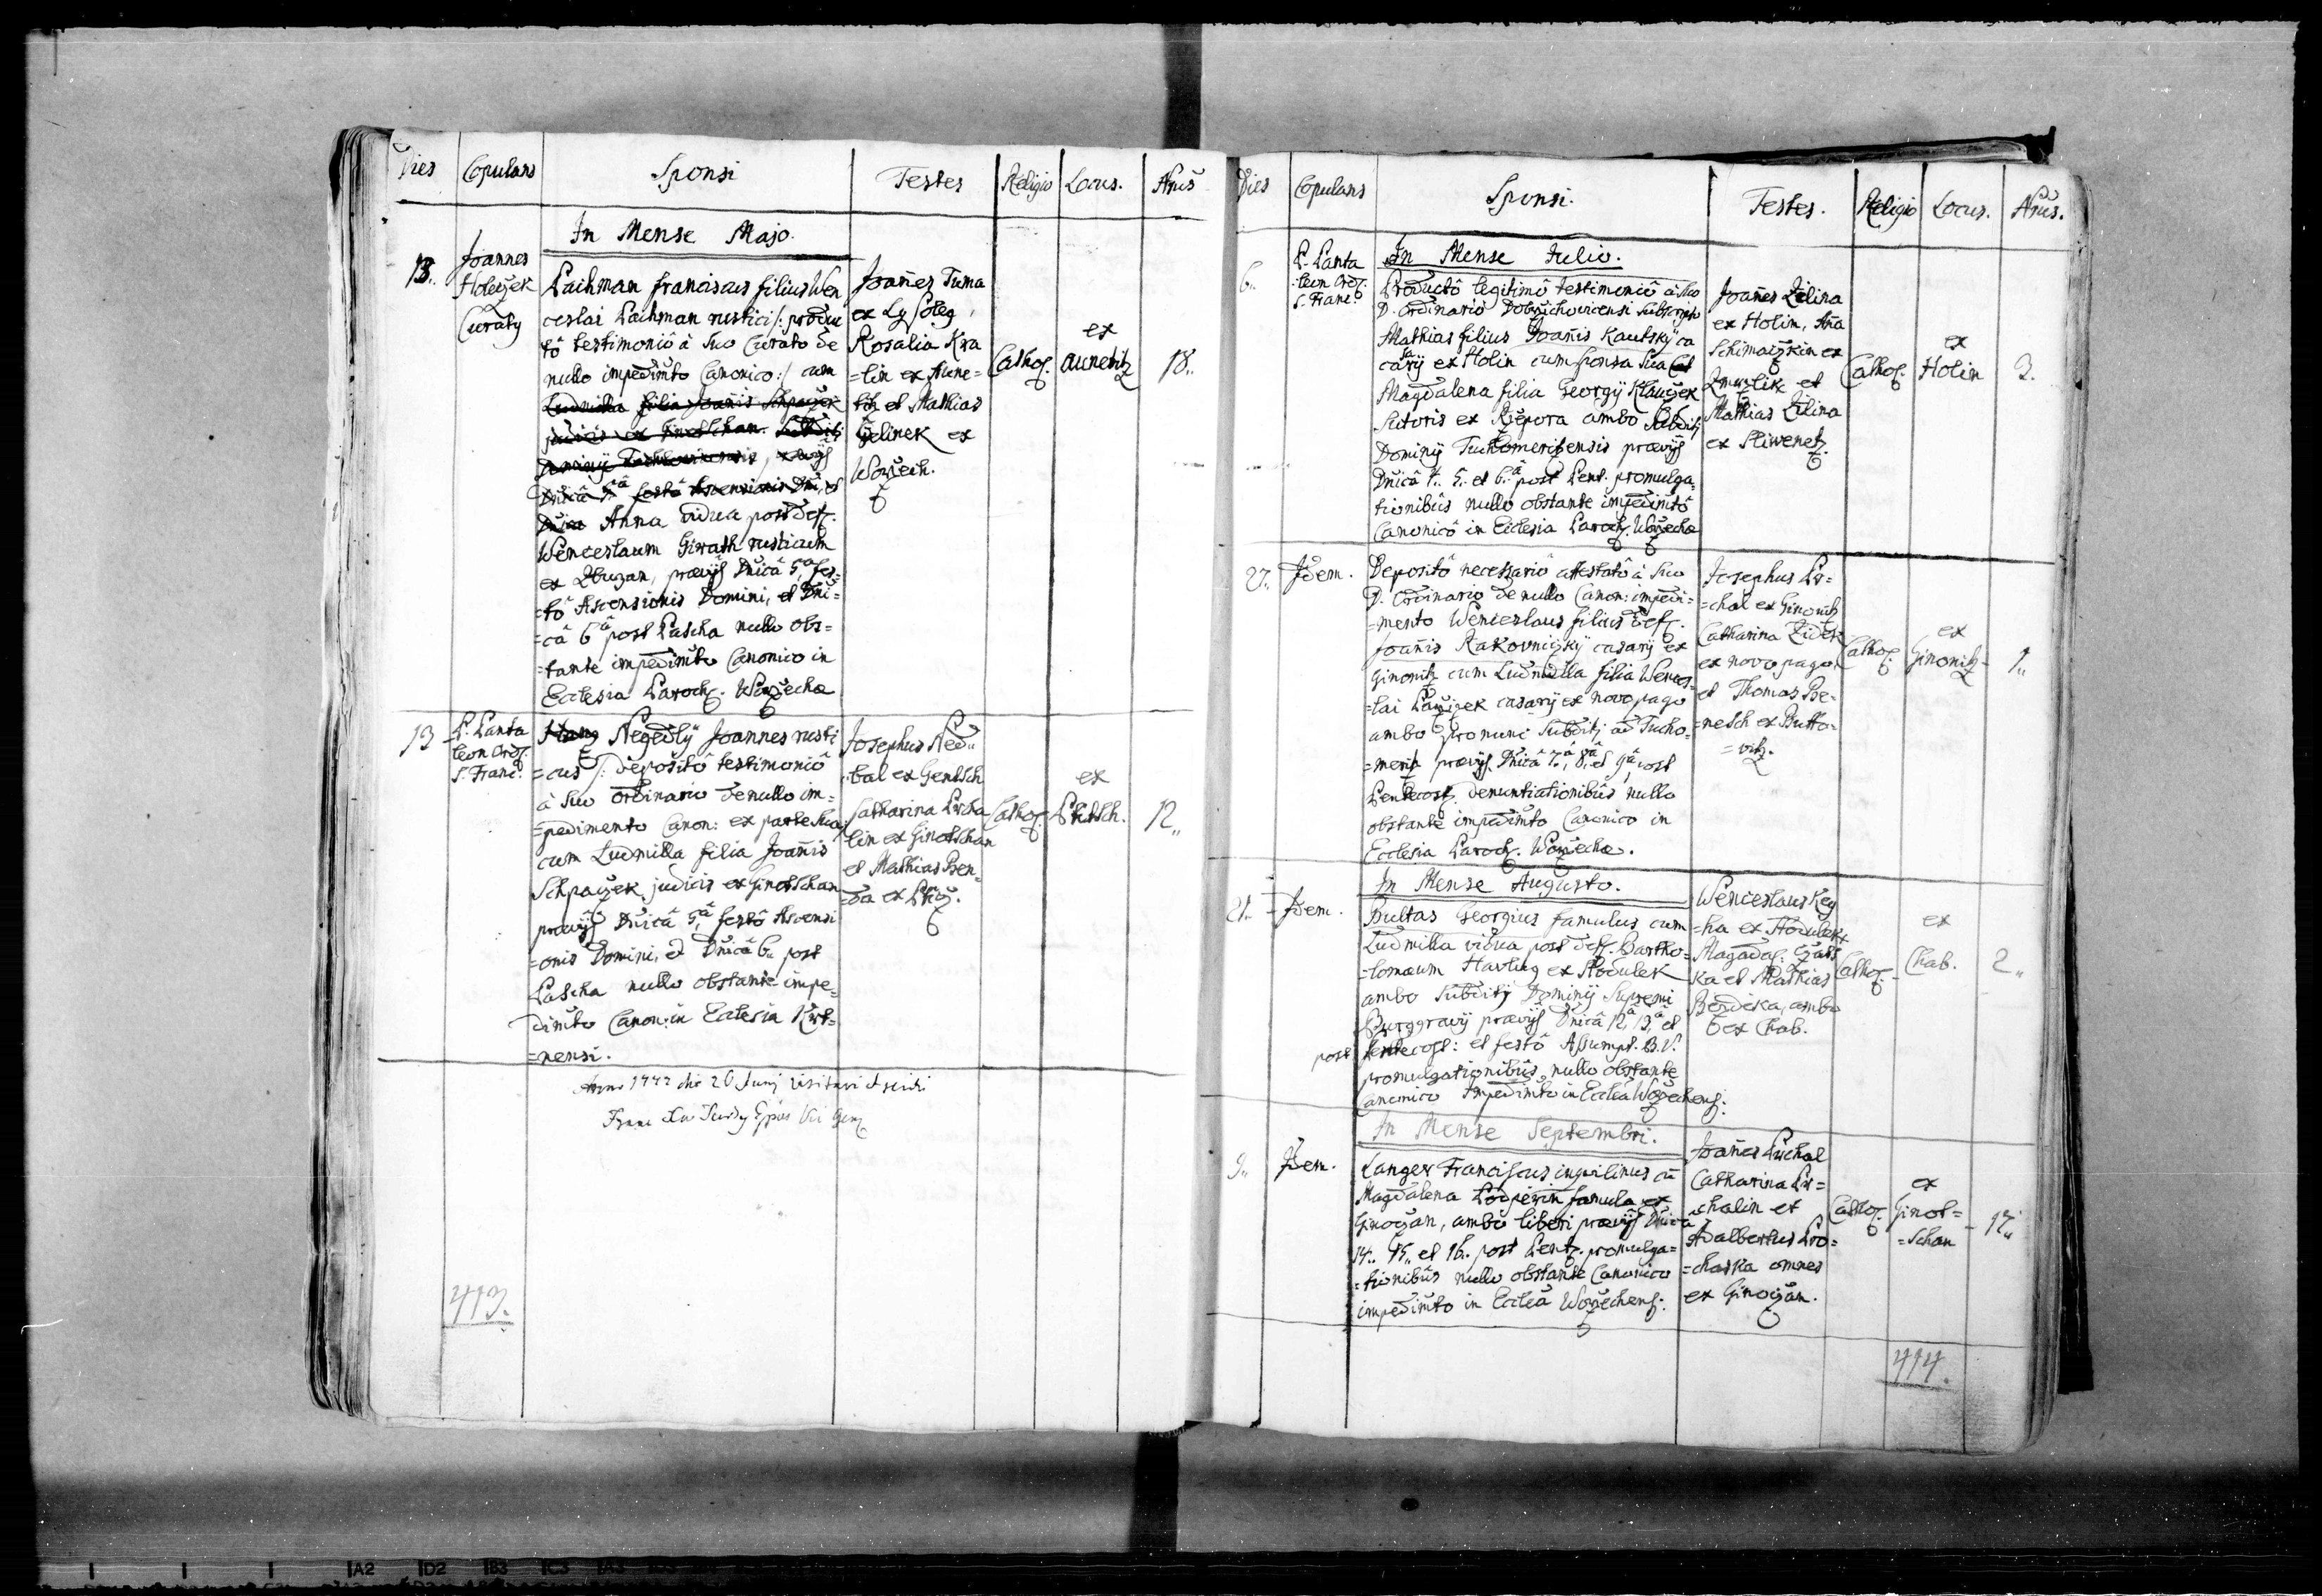 Dies Copulans Sponsi Testes Religio Locus. Nrus
In Mense Majo.
13.. Joannes
Holeczek
Curaty
Pachman franciscus filius Wen
ceslai Pachman rustici /: produc
tô testimoniô à suo Curato de
nullo impedimto Canonico :/ cum
Ludmilla filia Joan̄is Schpaczek
judicis ex Ginotschan. Subditi
Dominij
Dnicâ 5â festô Ascensionis Dni, et
Dnica Anna vidua post def.
Wenceslaum Girash rusticum
ex Zbuzan, praevijs Dnicâ 5â fes=
=tô Ascensionis Domini, et Dni=
=câ 6â post Pascha nullo obs=
=tante impedimto Canonico in
Ecclesia Paroch. Worzecha
Joan̄es Tuma
ex Lysoleg,
Rosalia Kra
=lin ex Aune=
titz et Mathias
Gelinek ex
Worzech.
Cathol.
ex
aunetitz
18..
13 P. Panta
leon Ord.
S. Franc.
Negedly Joannes rusti
=cus /: depositô testimoniô
à suo ordinario de nullo im=
=pedimento Canon: ex parte sua
cum Ludmilla filia Joan̄is
Schpaczek judicis ex Ginotschan
praevijs Dnicâ 5â, festô Ascensi
=onis Domini, et Dnicâ 6.. post
Pascha nullo obstante impe=
dimto Canon: in Ecclesia
=nensi.
Josephus Ned..
.bal ex Gentsch
Catharina Pucha
lin ex Ginotschan
et Mathias Ben=
=da ex
Cathol.
ex
12..
Anno 1772 die 20 Junij visitavi et vidi
413.
Dies Copulans Sponsi. Testes. Religio Locus. Nrus.
In Mense Julio.
6.. P. Panta
-leon Ord.
S. Franc.
Productô legitimô testimoniô à suo
D. Ordinariô Dobrichovicensi subscripto
Mathias filius Joan̄is Kautsky ca
sarij ex Holin cum sponsa sua
Magdalena filia Georgij Klauczek
Sutoris ex Rzepora ambo Subditj
Dominij Tuchomerzensis praevijs
Dnicâ 4.. 5.. et 6..â post Pent. promulga=
tionibûs nullo obstante impedimtô
Canonicô in Ecclesia Paroch. Worzecha
Joan̄es Zilina
ex Holin, An̄a
Schimaczkin ex
Zmrzlik et
Mathias Zilina
ex Sliwenetz.
Cathol.
ex
Holin
3.
27.. Idem.
Depositô necessariô attestatô à suo
D. Ordinario de nullo Canon: impedi=
=mento Wenceslaus filius def.
Joan̄is Rakovniczky casarij ex
Ginonitz cum Ludmilla filia Wences=
=lai casarij ex novo pago
ambo pronunc Subditj ad Tucho=
=meritz praevijs. Dnicâ 7â, 8â, et 9â post
Pentecost. denuntiationibûs nullo
obstante impedimto Canonico in
Ecclesia Paroch. Worzecha.
Josephus Pu=
=chal ex Ginonitz
Catharina Zidek
ex novo pago,
et Thomas Bse-
=netsch ex Butto=
=vitz.
Cathol.
ex
Ginonitz
1..
In Mense Augusto.
21.. Idem.
Bultas Georgius famulus cum
Ludmilla vidua post def. Bartho=
=lomaeum Havlug ex Stodulek
ambo Subditj Dominij Supremi
Burggravij praevijs Dnicâ 12â 13â, et
post Pentecost: et festô Assumpt. B.V.
promulgationibûs nullo obstante
Canonico Impedimto in Ecclea Worzechens:
Wenceslaus Rey
=ha ex Stodulek
Magdal:
ka et Mathias
ambo
ex Chab.
Cathol.
ex
Chab.
2..
In Mense Septembri.
9.. Idem.
Langer Franciscus inquilinus cū
Magdalena famula ex
Ginoczan, ambo liberi praevijs Dnicâ
14.. 15.. et 16. post Pent. promulga=
=tionibûs nullo obstante Canonico
impedimto in Ecclea Worzechens:
Joan̄es Puchal
Catharina Pu=
=chalin et
Adalbertus Pro=
=chaska omnes
ex Ginoczan.
Cathol.
ex
Ginot=
=schan
17..
414.